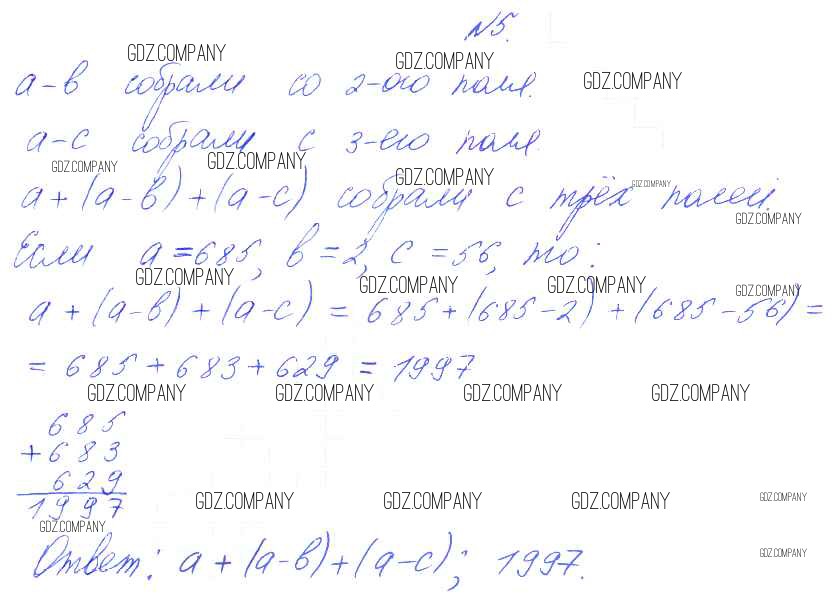 №5.
GDZ.COMPANY GDZ.COMPANY GDZ.COMPANY
а-в собрали со 2-ого поля.
а-с собрали с 3-его поля.
GDZ.COMPANY GDZ.COMPANY GDZ.COMPANY GDZ.COMPANY
а+(а-в)+(а-с) собрали с трёх полей.
GDZ.COMPANY
Если а=685, в=2, с=56, то:
GDZ.COMPANY GDZ.COMPANY GDZ.COMPANY GDZ.COMPANY
а+(а-в)+(а-с)=685+(685-2)+(685-56)=
=685+683+629=1997
GDZ.COMPANY GDZ.COMPANY GDZ.COMPANY GDZ.COMPANY
685
+683
629
1997
GDZ.COMPANY GDZ.COMPANY GDZ.COMPANY GDZ.COMPANY
GDZ.COMPANY
Ответ: а+(а-в)+(а-с); 1997.
GDZ.COMPANY